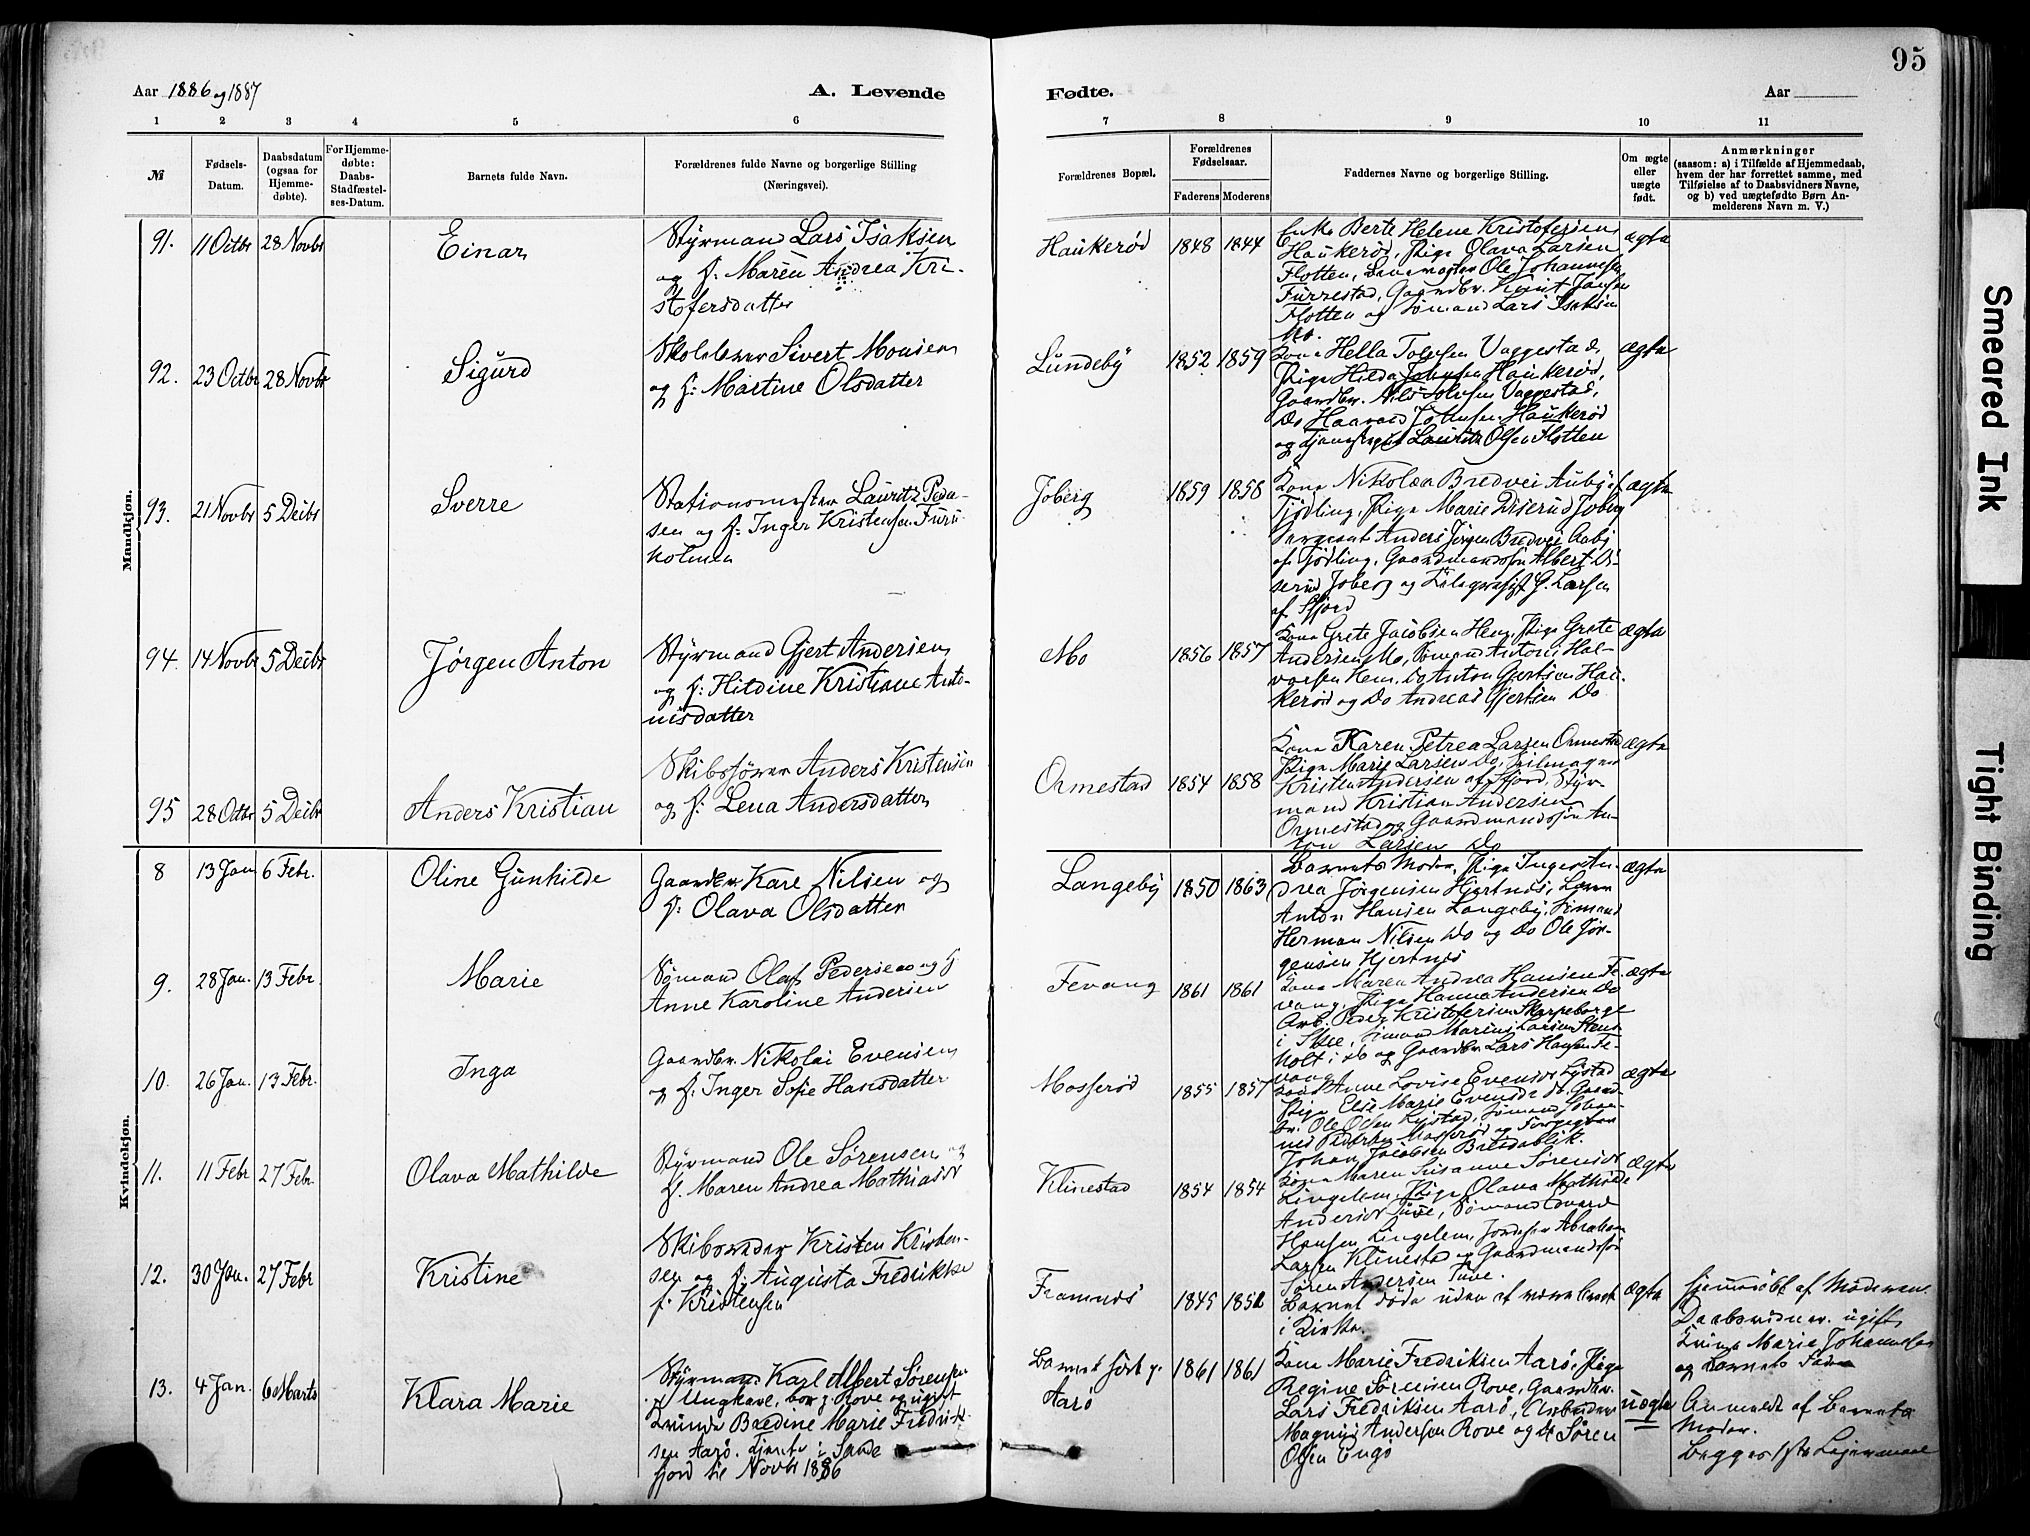 95
Aar 1886 og 1887
A. Levende
Fødte.
Aar
1 2 3 4 5 6 7 8 9 10 11
№
Fødsels-
Datum.
Daabsdatum
(ogsaa for
Hjemme-
døbte).
For Hjemme-
døbte:
Daabs-
Stadfæstel-
ses-Datum.
Barnets fulde Navn.
Forældrenes fulde Navne og borgerlige Stilling
(Næringsvei).
Forældrenes Bopæl.
Forældrenes
Fødselsaar.
Faderens Moderens
Faddernes Navne og borgerlige Stilling.
Om ægte
eller
uægte
født.
Anmærkninger
(saasom: a) i Tilfælde af Hjemmedaab,
hvem der har forrettet samme, med
Tilføielse af to Daabsvidners Navne,
og b) ved uægtefødte Børn An-
melderens Navn m. V.)
Mandkjøn.
91. 11 Octbr 28 Novbr Einar
Styrmand Lars Isaksen
og h: Maren Andrea Kri-
stofersdatter
Haukerød 1848 1844
Enke Berte Helene Kristofersen
Haukerød, Pige Olava Larsen
Flotten, Ole Johannesen
Furrestad, Gaardbr. Knut Jansen
Flotten og Sømand Lars Isaksen
Mo.
ægte
92. 23 Octbr 28 Novbr Sigurd
Skolelærer Sivert Monsen
og h: Martine Olsdatter
Lundeby 1852 1859
Kone Hella Tolvsen Vaggestad,
Pige Hilda Johnsen Haukerød,
Gaardbr. Nils Tolvsen Vaggestad,
Do Haavard Johnsen Haukerød
og Lauritz Olsen Flotten
ægte
93. 21 Novbr 5 Decbr Sverre
Stationsmester Lauritz Peder-
sen og h: Inger Kristensen Furu-
holmen
Joberg 1859 1858
Kone Nikolea Bredvei Auby af
Tjødling, Pige Marie Diserud Joberg
Sergeant Anders Jörgen Bredvei Auby
af Tjødling, Gaardmandssøn Albert Di-
serud Joberg og Telegrafist G. Larsen
af Sfjord
ægte
94. 14 Novbr 5 Decbr Jørgen Anton
Styrmand Gjert Andersen
og h: Hildine Kristiane Anto-
nisdatter
Mo 1856 1857
Kone Grete Jacobsen Hem, Pige Grete
Andersen Mo, Sømand Antoni Hal-
vorsen Hem, Do Anton Gjertsen Hau-
kerød og Do Andreas Gjertsen Do
ægte
95 28 Octbr 5 Decbr Anders Kristian
Skibsfører Anders Kristensen
og h: Lena Andersdatter
Ormestad 1854 1858
Kone Karen Petrea Larsen Ormestad
Pige Marie Larsen Do, Seilmager
Kristen Andersen af Sfjord, Styr-
mand Kristian Andersen
Ormestad og Gaardmandssøn An-
ton Larsen Do
ægte
Kvindekjøn.
8 13 Jan 6 Febr. Oline Gunhilde
Gaardbr. Kare Nilsen og
h: Olava Olsdatter
Langeby 1850 1863
Barnets Moder, Pige Inger An-
drea Jørgensen Hjertnes,
Anton Hansen Langeby, Sømand
Herman Nilsen Do og Do Ole Jør-
gensen Hjertnes
ægte
9. 28 Jan. 13 Febr. Marie
Sømand Olaf Pedersen og h:
Anne Karoline Andersen
Fevang 1861 1861
Kone Maren Andrea Hansen Fe-
vang, Pige Hanna Andersen Do
Arb. Peder Kristofersen Skorpeborge
i Skee, Sømand Marius Larsen Stens-
holt i Do og Gaardbr. Lars Hansen Fe-
vang
ægte
10. 26 Jan. 13 Febr. Inga
Gaardbr. Nikolai Evensen
og h: Inger Sofie Hansdatter
Mosserød 1855 1857
Kone Anne Lovise Evensdr Lystad
Pige Else Marie Evensdr Do, Gaard-
br. Ole Olsen Lystad, Sømand Johan-
nes Pedersen Mosserød og
Johan Jacobsen Bredablik.
ægte
11. 11 Febr 27 Febr. Olava Mathilde
Styrmand Ole Sørensen og
h. Maren Andrea Mathiasdr
Klinestad 1854 1854
Kone Maren Susanne Sørensdr
Lingelem, Pige Olava Mathilde
Andersdr Tuve, Sømand Edvard
Hansen Lingelem, Abraham
Larsen Klinestad og Gaardmandssøn
Søren Andersen Tuve.
ægte
12. 30 Jan. 27 Febr Kristine
Skibsreder Kristen Kristen-
sen og h: Augusta Fredrikke
f. Kristensen
Framnes 1845 1851
Barnet døde uden at være bragt
i Kirke.
ægte
Hjemmedøbt af Moderen.
Daabsvidner. ugift
Kvinde Marie Johannesen
og Barnets Fader
13. 4 Jan. 6 Marts Klara Marie
Styrmand Karl Albert Sørensen
Ungkarl, bor p. Rove og ugift
Kvinde Bredine Marie Fredrik-
sen Aarø. tjente i Sande
fjord til Novbr 1886
Barnet født p.
Aarø
1861 1861
Kone Marie Fredriksen Aarø, Pige
Regine Sørensen Rove, Gaardbr.
Lars Fredriksen Aarø, Arbeider
Magnus Andersen Rove og Do Søren
Olsen Engø
uægte
Anmeldt af Barnets
Moder.
Begges 1ste Leiermaal
Smeared Ink
Tight Binding